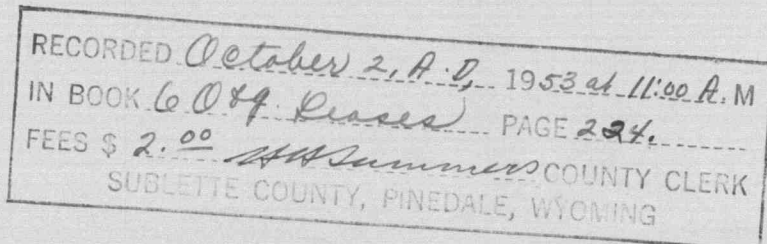 RECORDED October 2, A.D, 1953 at 11:00 A.M
IN BOOK 6 O&g. Leases PAGE 224.
FEES $ 2.00 HHSummers COUNTY CLERK
SUBLETTE COUNTY, PINEDALE, WYOMING